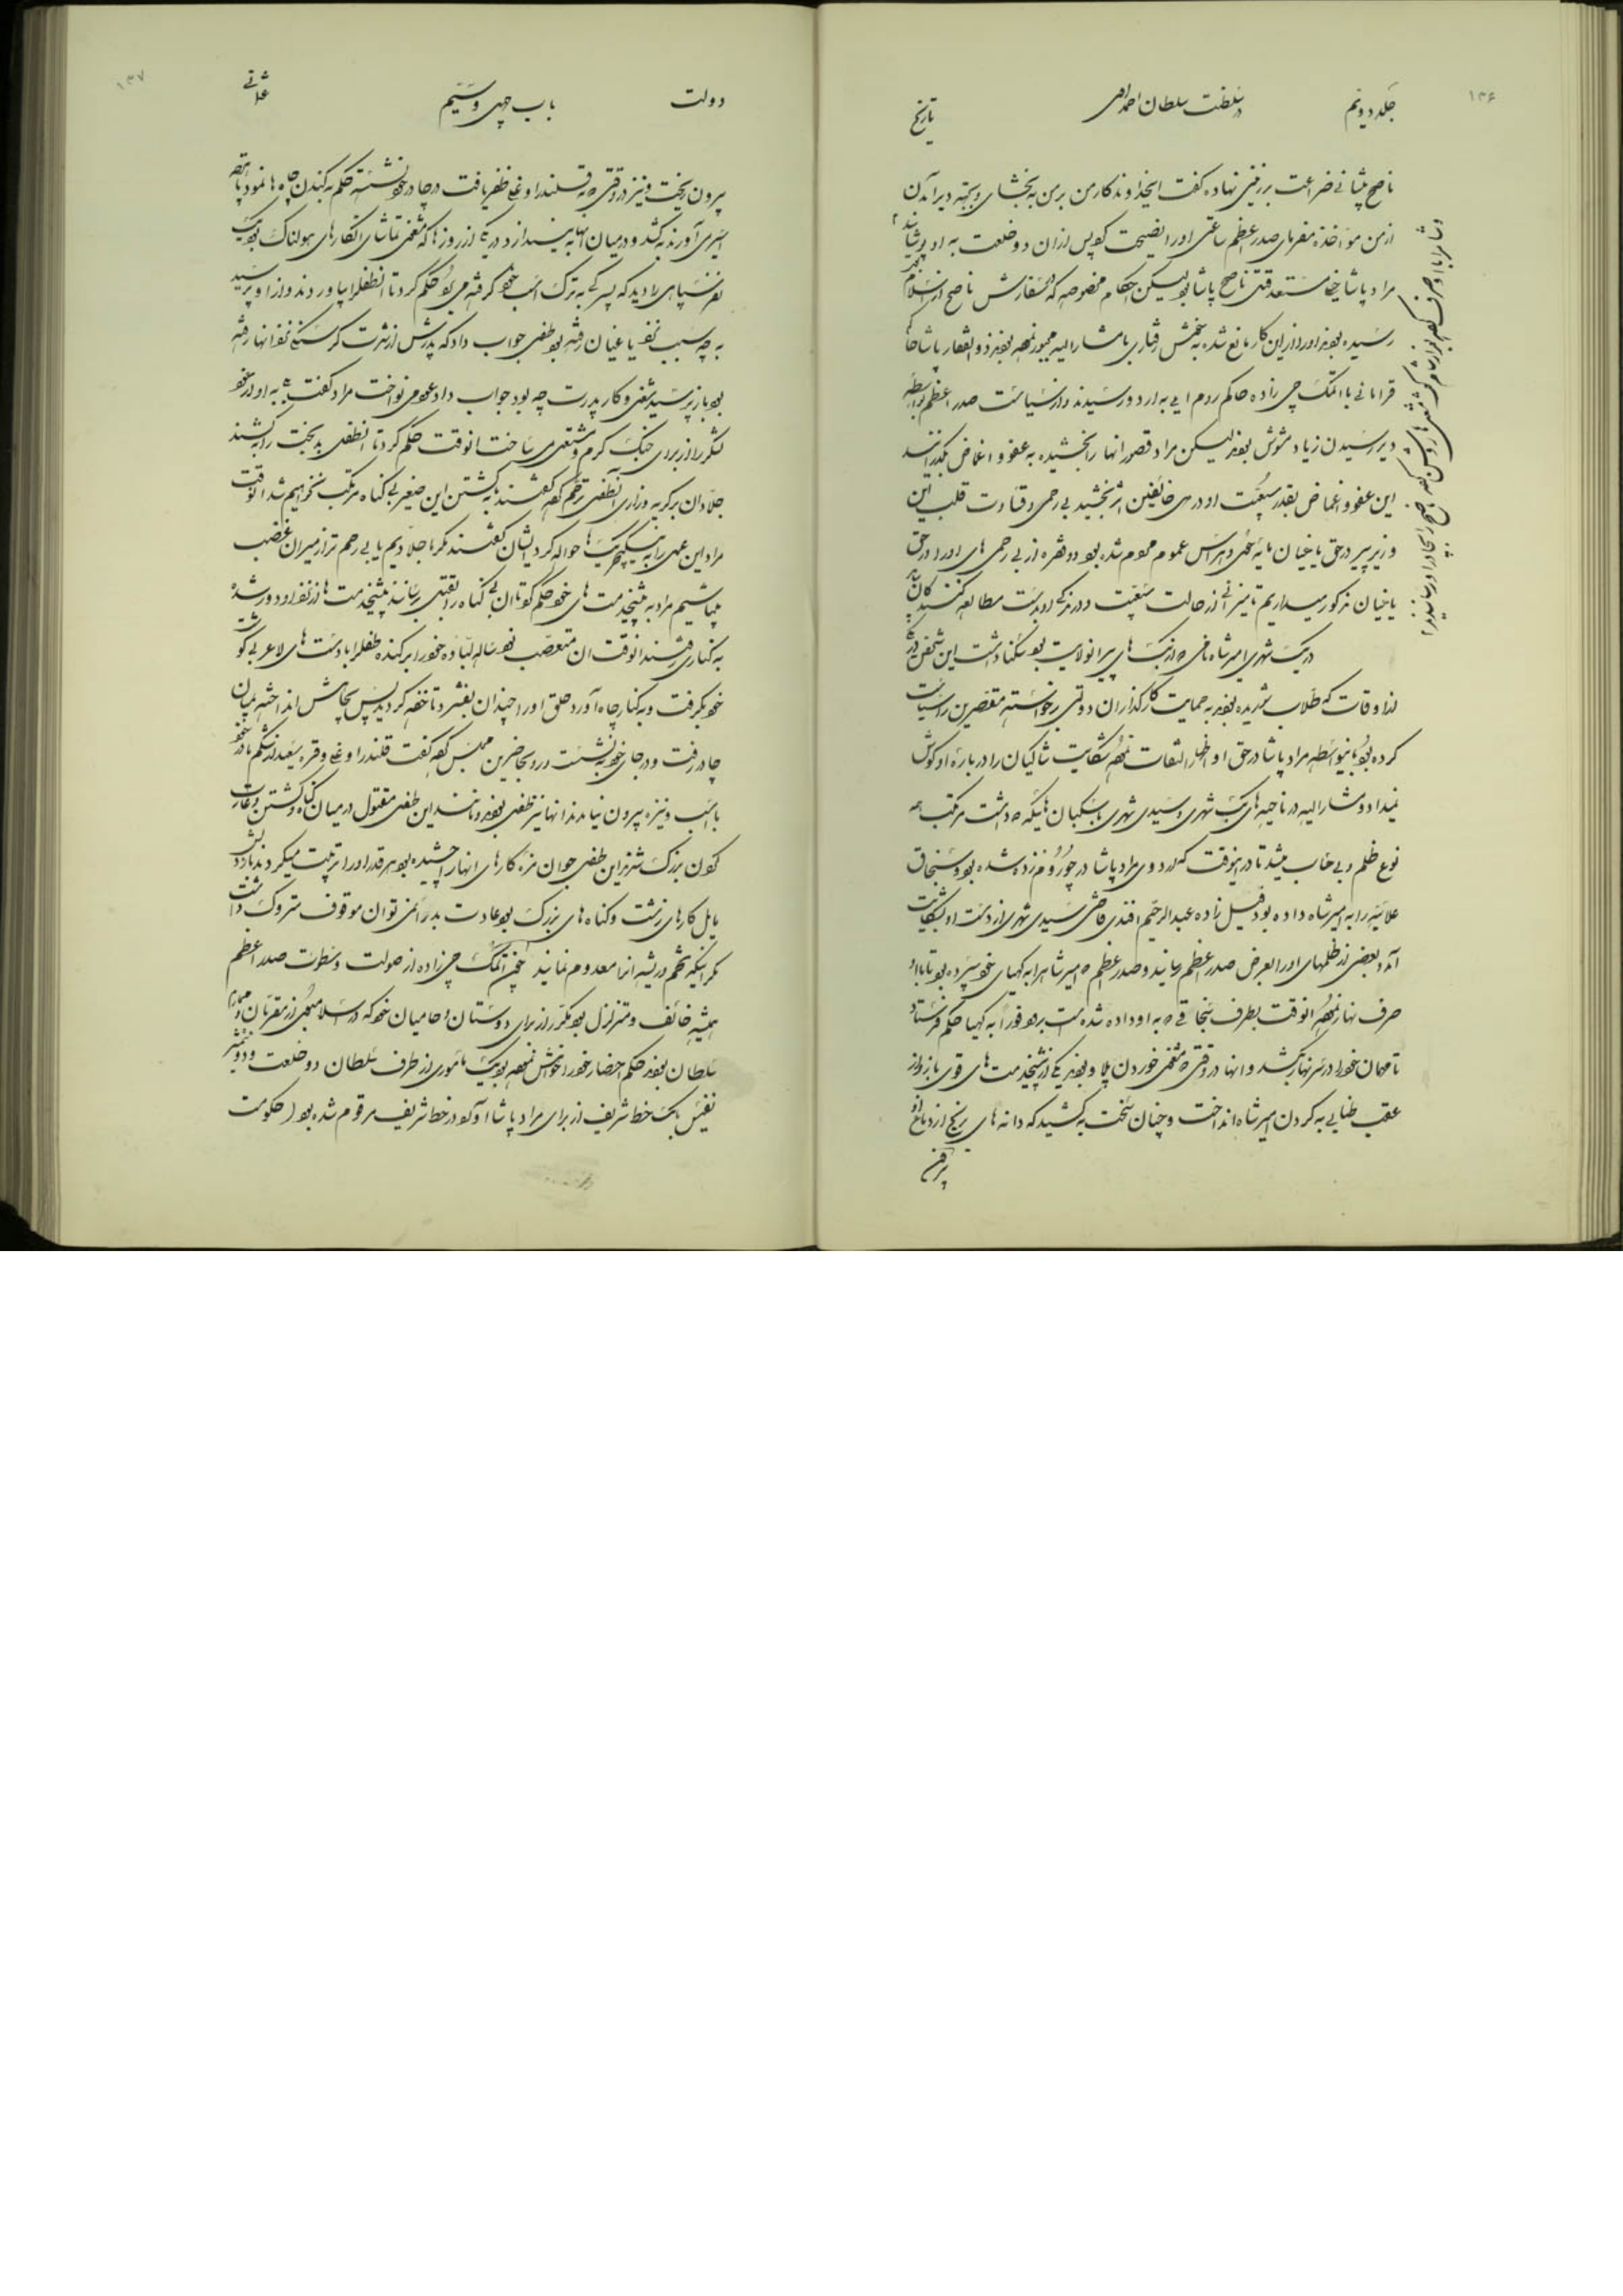 ۱۳۶
جلد دویم
در سلطنت سلطان احمد اول
تاریخ
ناصح پیشانی ضراعت بر زمین نهاده گفت ای خداوندکار من بر من به بخشای و بجهة دیر آمدن
از من مؤاخذه مفرمای صدر اعظم ساعتی او را نصیحت کرد پس از ان دو خلعت به او پوشانید
مراد پاشا خیلی مستعد قتل ناصح پاشا بود لیکن احکام مخصوصه که در سفارش ناصح از اسلامبول
رسیده بودند او را از این کار مانع شده به خوش رفتاری با مشارالیه مجبور نموده بودند ذوالفقار پاشا حاکم
قرامانی با اتمک چی زاده حاکم روم ایلی به اردو رسیدند و از سیاست صدر اعظم بواسطه
دیر رسیدن زیاد مشوش بودند لیکن مراد قصور انها را بخشیده به عفو و اغماض بگذرانید
این عفو و اغماض بقدر سبعیت او در دل خائفین اثر نبخشید بی رحمی و قساوت قلب این
وزیر پیر در حق یاغیان مایه خوف و هراس عموم مردم شده بود دو فقره از بی رحمی های او را در حق
یاغیان مذکور میداریم تا میزانی از حالت سبعیت و درندگی او بدست مطالعه کنندگان
در بک شهری امیر شاه نامی که از بک های پیر انولایت بود سکنا داشت این شخص در
ان اوقات که طلاب شوریده بودند به حمایت کارگذاران دولتی برخواسته مقصرین را سیاست
کرده بود باینواسطه مراد پاشا در حق او اظهار التفات نموده شکایت شاکیان را در باره او گوش
نمیداد و مشارالیه در ناحیه های بک شهری و سیدی شهری با سکبان هائیکه داشت مرتکب همه
نوع ظلم و بی حساب میشد تا در اینوقت که اردوی مراد پاشا در چوروم زده شده بود و سنجاق
علائیه را به امیر شاه داده بود فیل زاده عبد الرحیم افندی قاضی سیدی شهری از دست او بشکایت
آمد و بعضی از ظلمهای او را بعرض صدر اعظم رسانید و صدر اعظم که امیر شاه را به کهیای خود سپرده بود تا با او
صرف نهار نموده انوقت بطرف سنجاقی که به او داده شده است برود فوراً به کهیا حکم فرستاد
تا مهمان خود را در سر نهار بکشد و انها در وقتی که مشغول خوردن پلاو بودند یکی از پیشخدمت های قوی بازو از
عقب طنابی به گردن امیر شاه انداخت و چنان سخت به کشید که دانه های برنج از دماغ او
پرون
۱۳۷
دولت
باب چهل و سیم
عثمانی
پرون ریخت و نیز در وقتی که به قلندر اوغلی ظفر یافت در چادر خود نشسته حکم به کندن چاه ها نمود تا هر
اسیری آورند به کشد و در میان انها به اندازد در یکی از روزها که مشغول تماشای انکارهای هولناک بود یک
نفر سپاهی را دید که پسرکی به ترک اسب خود گرفته می برد حکم کرد تا انطفل را بیاوردند و از او پرسید
به چه سبب نزد یاغیان رفته بود طفل جواب داد که پدرش از شدت گرسنگی نزد انها رفته
بود باز پرسید شغل و کار پدرت چه بود جواب داد عود می نواخت مراد گفت
لشکر را از برای جنگ گرم و مشتعل می ساخت انوقت حکم کرد تا انطفل بدبخت را به کشند
جلادان بر گریه و زاری آنطفل ترحم کرده گفتند به کشتن این صغیر بی گناه مرتکب نخواهیم شد انوقت
مراد این عمل را به ینگیچریک ها حواله کرد ایشان گفتند مگر ما جلادیم یا بی رحم تر از میران غضب
میباشیم مراد به پیشخدمت های خود حکم کرد تا ان بی گناه را بقتل رسانند پیشخدمت ها از نزد او دور شده
به کناری رفتند انوقت ان متعصب نود ساله لباده خود را بر کنده طفل را با دست های لاغر بی گوشت
خود بگرفت و به کنار چاه آورد حلق او را چندان بفشرد تا خفه گردید پس بچاهش انداخته به میان
چادر رفت و در جای خود به نشست و رو به حاضرین مجلس کرده گفت قلندر اوغلی و قره سعید از شکم مادر خود
با اسب و نیزه پرون نیامدند انها نیز طفل بودند و مانند این طفل مقتول در میان گناه و کشتن و غارت
کردن بزرگ شدند این طفل جوان مزه کارهای انها را چشیده بود هر قدر او را تربیت میکردند باز دلش
مایل کارهای زشت و گناه های بزرگ بود عادت بد را نمی توان موقوف و متروک داشت
مگر اینکه تخم و ریشه انرا معدوم نمایند اتمک چی زاده از صولت و سطوت صدر اعظم
همیشه خائف و متزلزل بود مکرر از برای دوستان و حامیان خود که در اسلامبول از مقربان
سلطان بودند حکم احضار خود را خواهش نموده بود یک ماموری از طرف سلطان دو خلعت و دو شمشیر
نفیس با یک خط شریف از برای مراد پاشا آورد در خط شریف مرقوم شده بود (حکومت